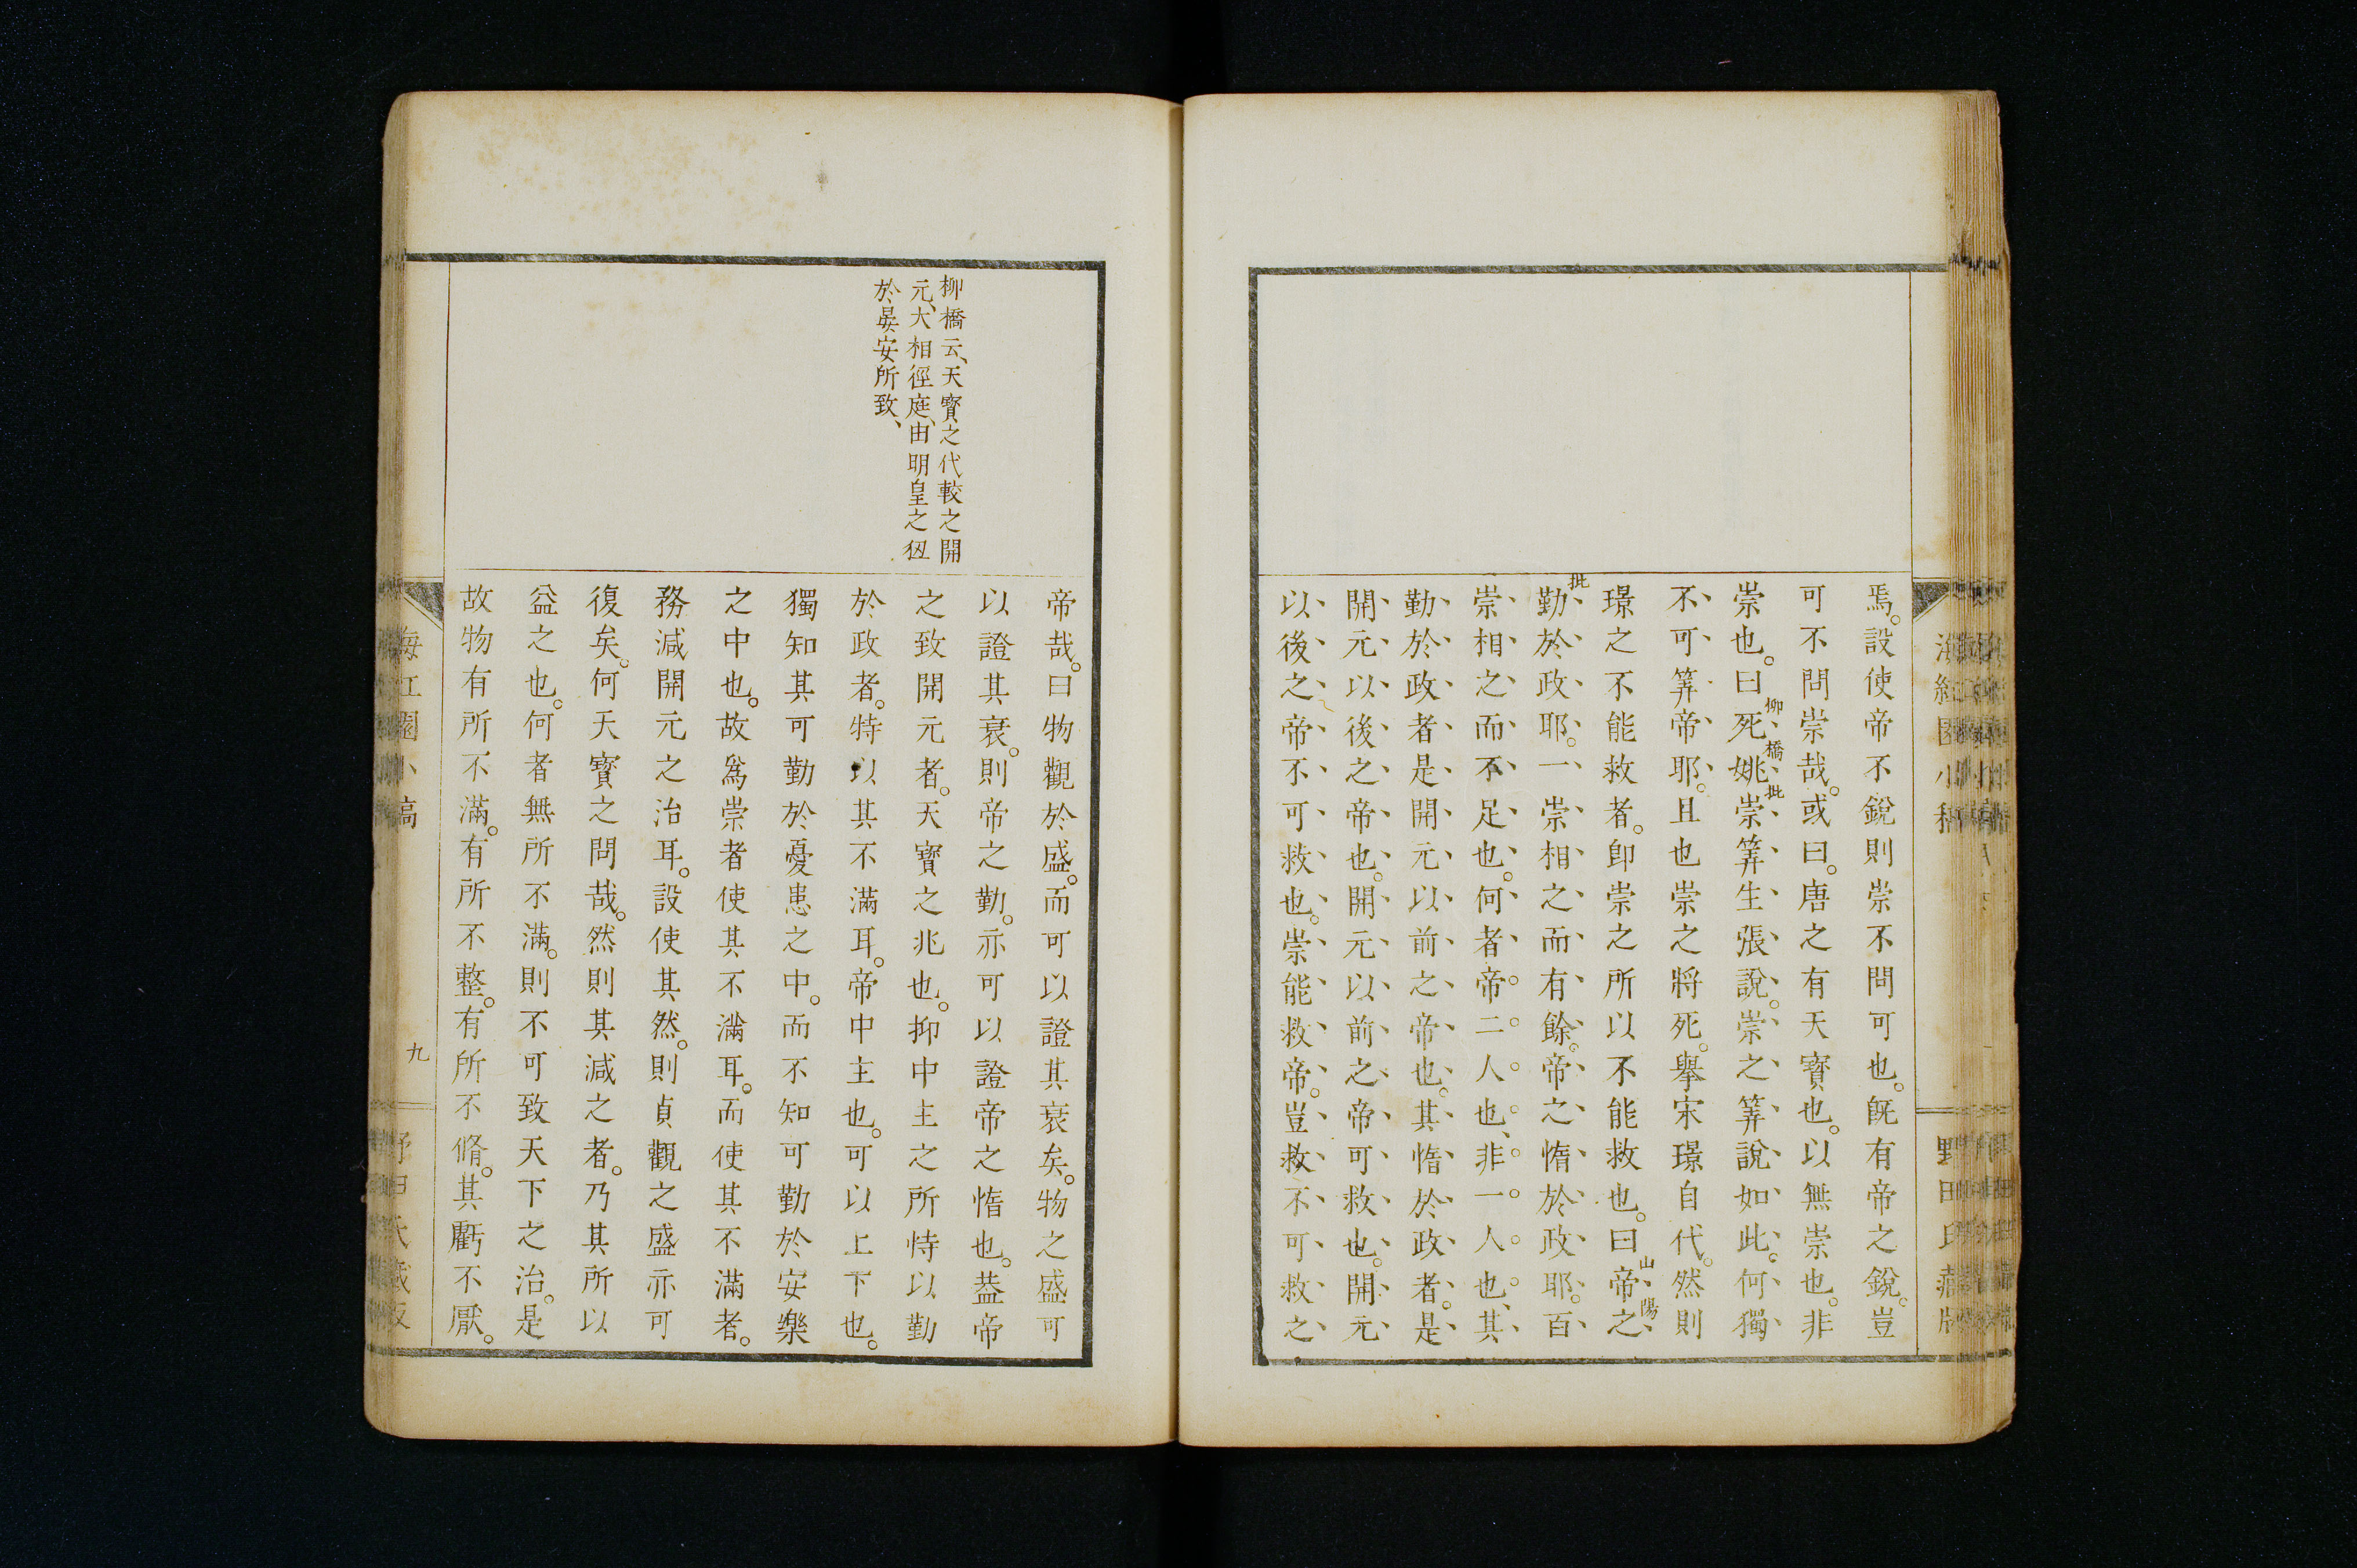 焉。設使帝不銳則崇不問可也。旣有帝之銳。豈
可不問崇哉。或曰。唐之有天寶也。以無崇也。非
崇也。曰死姚崇筭生張說。崇之筭說如此。何獨
柳橋批
不可筭帝耶。且也崇之將死。擧宋璟自代。然則
璟之不能救者。卽崇之所以不能救也。曰帝之
山陽
批
勤於政耶。一崇相之而有餘。帝之惰於政耶。百
崇相之而不足也。何者帝二人也、非一人也、其
勤於政者是開元以前之帝也。其惰於政者。是
開元以後之帝也。開元以前之帝可救也。開元
以後之帝不可救也。崇能救帝。豈救不可救之
野田氏藏版
柳橋云、天寶之代較之開
元、大相徑庭、由明皇之狃
於晏安所致、
帝哉。曰物觀於盛。而可以證其衰矣。物之盛可
以證其衰。則帝之勤。亦可以證帝之惰也。葢帝
之致開元者。天寶之兆也。抑中主之所恃以勤
於政者。特以其不滿耳。帝中主也。可以上下也。
獨知其可勤於憂患之中。而不知可勤於安樂
之中也。故爲崇者使其不滿耳。而使其不滿者。
務減開元之治耳。設使其然。則貞觀之盛亦可
復矣。何天寶之問哉。然則其減之者。乃其所以
益之也。何者無所不滿。則不可致天下之治。是
故物有所不滿。有所不整。有所不脩。其虧不厭。
海紅園小稿
九